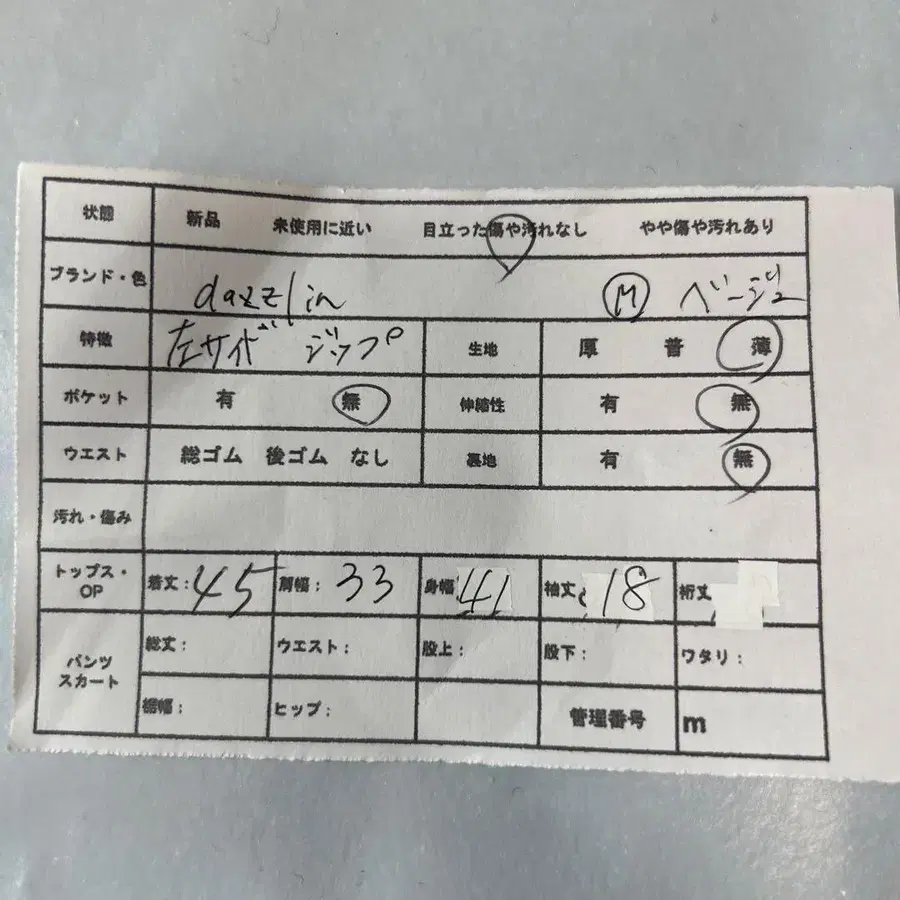 状態 新品 未使用に近い 目立った傷や汚れなし やや傷や汚れあり
ブランド・色 dazzlin M ベージュ
特徴 左サイド ジップ 生地 厚 普 薄
ポケット 有 無 伸縮性 有 無
ウエスト 総ゴム 後ゴム なし 裏地 有 無
汚れ・傷み
トップス・OP 着丈:45 肩幅:33 身幅 41 袖丈: 18 裄丈
パンツ スカート 総丈: ウエスト: 股上: 股下: ワタリ:
裾幅: ヒップ: 管理番号 m